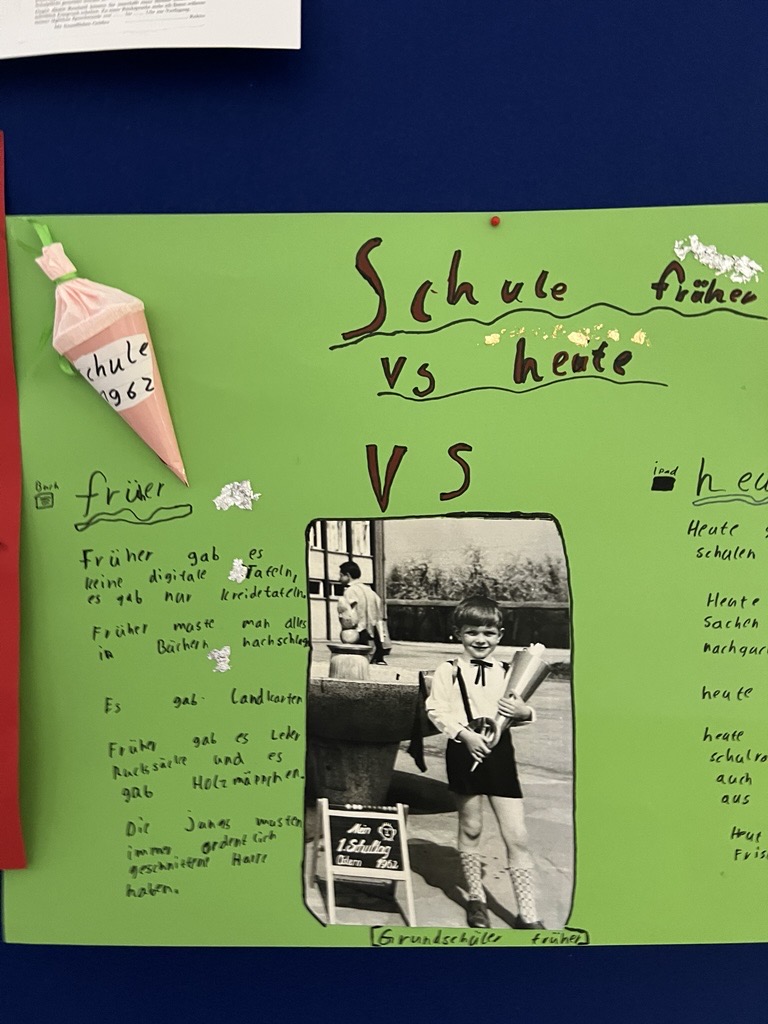 Mit freundlichen Grüßen
Schule früher
vs heute
Schule
1962
VS
Buch
früer
Früher gab es
keine digitale Tafeln,
es gab nur kreidetafeln.
Früher muste man alles
in Büchern nachschlag
Es gab Landkarten
Früher gab es Leder
Rucksäcke und es
gab Holzmännchen.
Die jungs musten
immer ordentlich
geschnittene Haare
haben.
Mein
1. Schultag
Ostern 1962
[Grundschüler früher]
ipad
heu
Heute
schulen
Heute
Sachen
nachguc
heute
heute
schulra
auch
aus
Heut
Fris